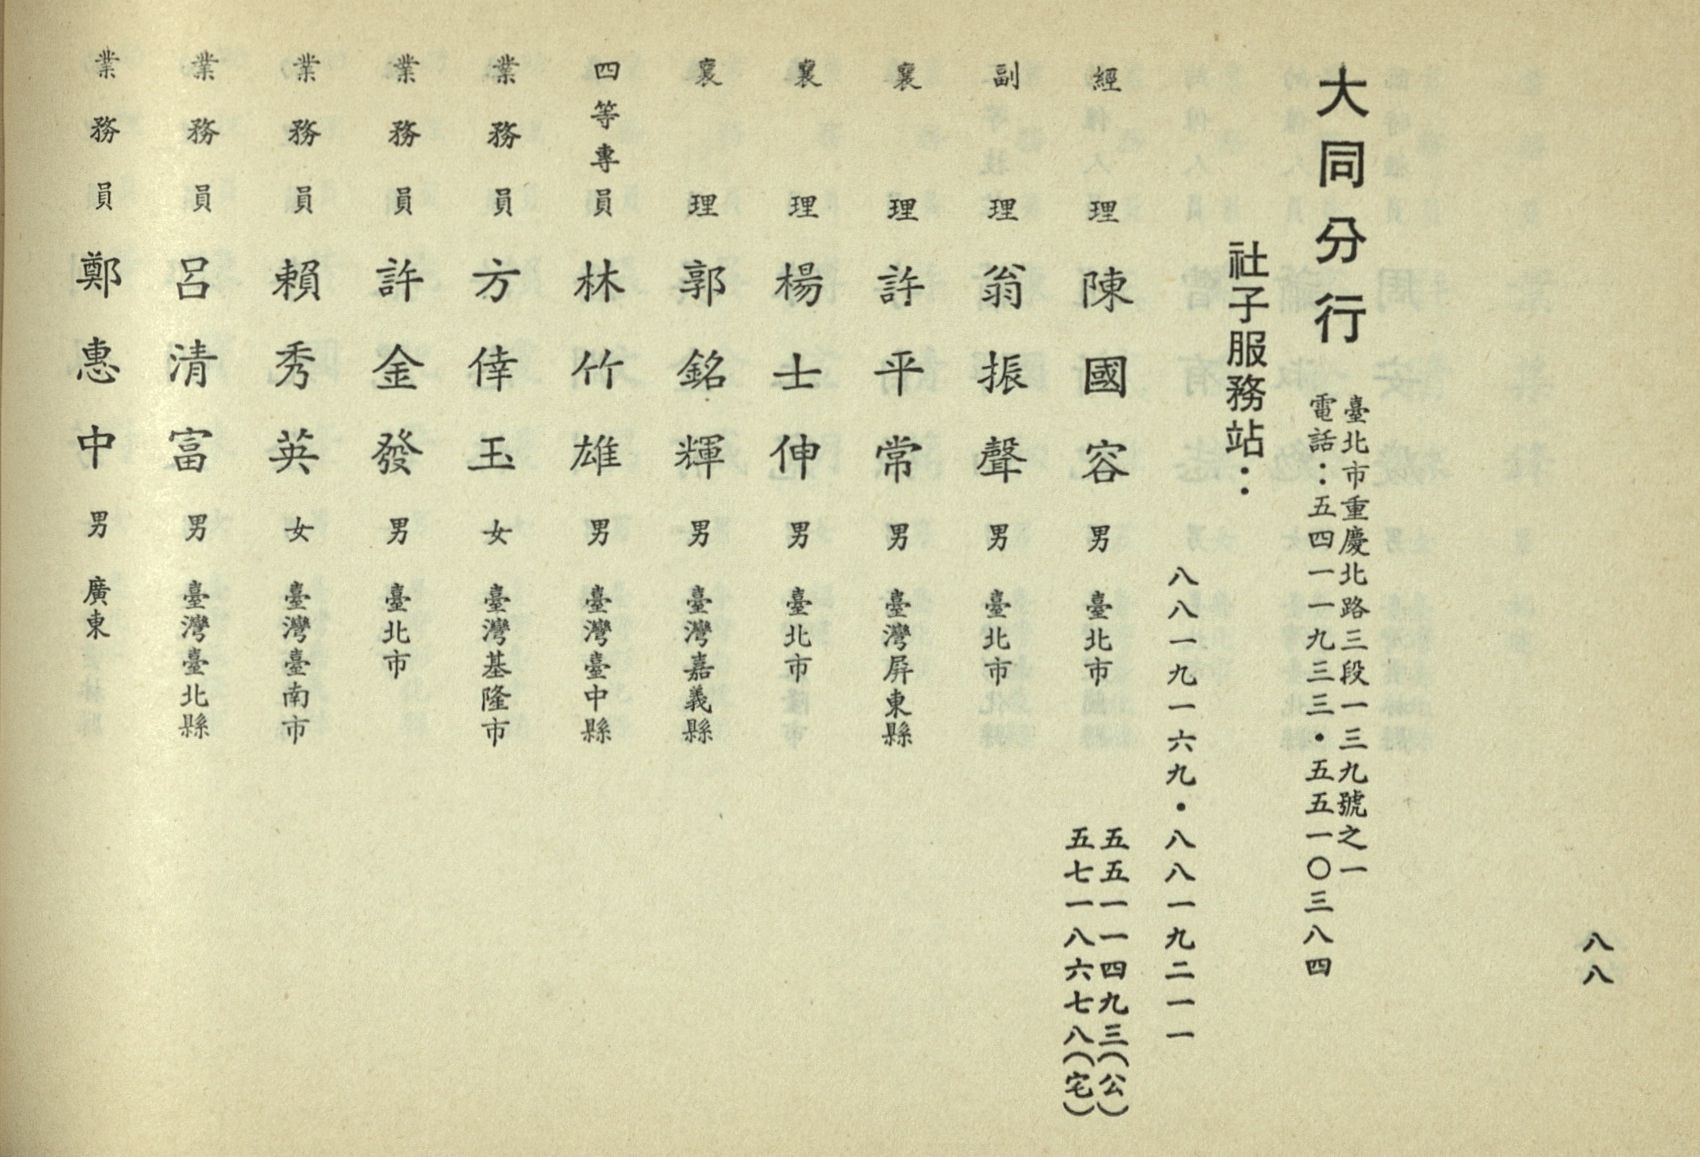 八八
大同分行
臺北市重慶北路三段一三九號之一
電話：五四一一九三三・五五一〇三八四
社子服務站：
八八一九一六九・八八一九二一一
經理 陳國容 男 臺北市 五五一一四九三（公）
五七一八六七八（宅）
副理 翁振聲 男 臺北市
襄理 許平常 男 臺灣屏東縣
襄理 楊士伸 男 臺北市
襄理 郭銘輝 男 臺灣嘉義縣
四等專員 林竹雄 男 臺灣臺中縣
業務員 方倖玉 女 臺灣基隆市
業務員 許金發 男 臺北市
業務員 賴秀英 女 臺灣臺南市
業務員 呂清富 男 臺灣臺北縣
業務員 鄭惠中 男 廣東